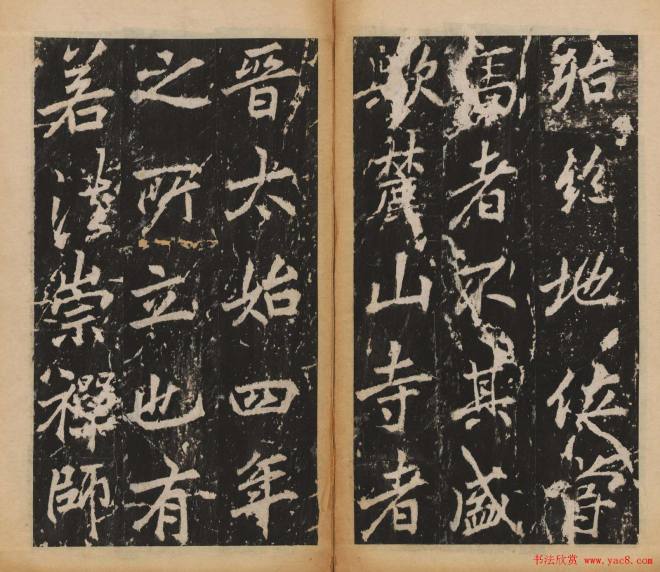 地
焉者不其盛
歟麓山寺者
晉太始四年
之所立也有
若法崇禪師
书法欣赏 www.yac8.com